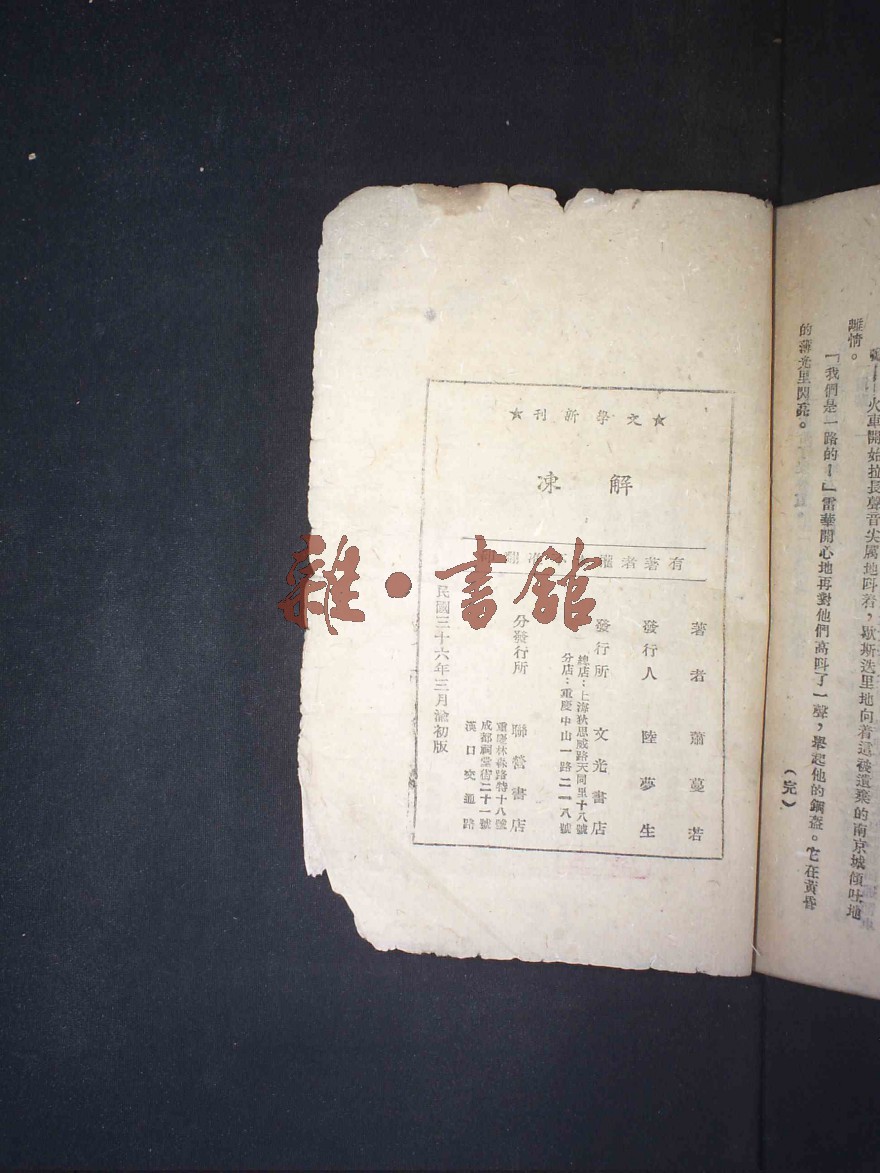 離情。
火車開始拉長聲音尖厲地叫着，歇斯迭里地向着這被遺棄的南京城傾吐地
「我們是一路的！」雷華開心地再對他們高叫了一聲，舉起他的鋼盔。它在黃昏
的薄光里閃亮。
（完）
★文學新刊★
解凍
有著者權
著者 蕭蔓若
發行人 陸夢生
發行所 文光書店
總店：上海狄思威路天同里十八號
分店：重慶中山一路二一八號
分發行所 聯營書店
重慶林森路特十八號
成都祠堂街二十一號
漢口交通路
民國三十六年三月渝初版
雜·書館